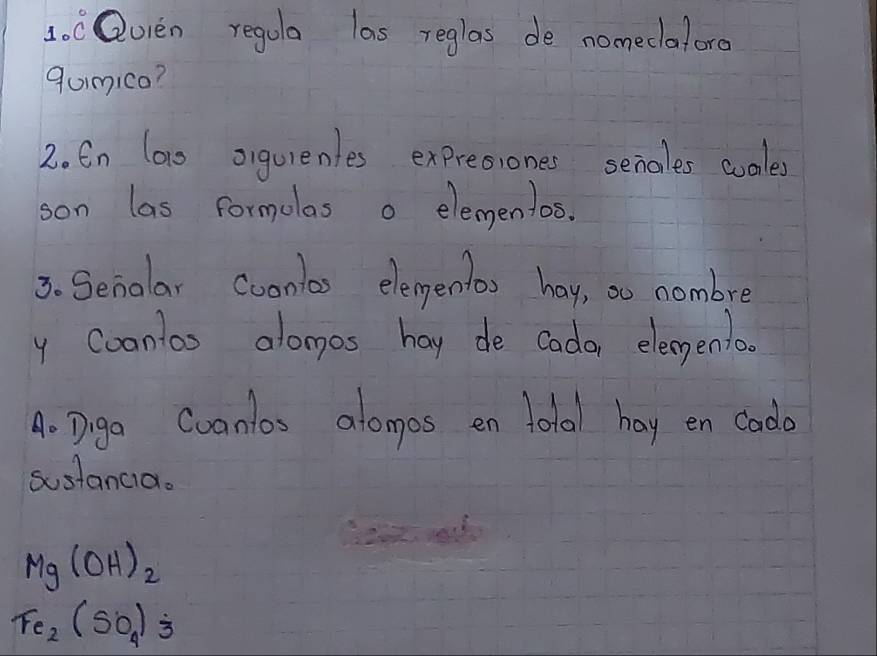 1. ¿Quién regula las reglas de nomeclatora
quimica?
2. En las siguientes expresiones señales cuales
son las formulas o elementos.
3. Señalar cuantos elementos hay, su nombre
y cuantos atomos hay de cada elemento.
4. Diga cuantos atomos en total hay en cada
sustancia.
Mg (OH)₂
Fe₂ (SO₄)₃